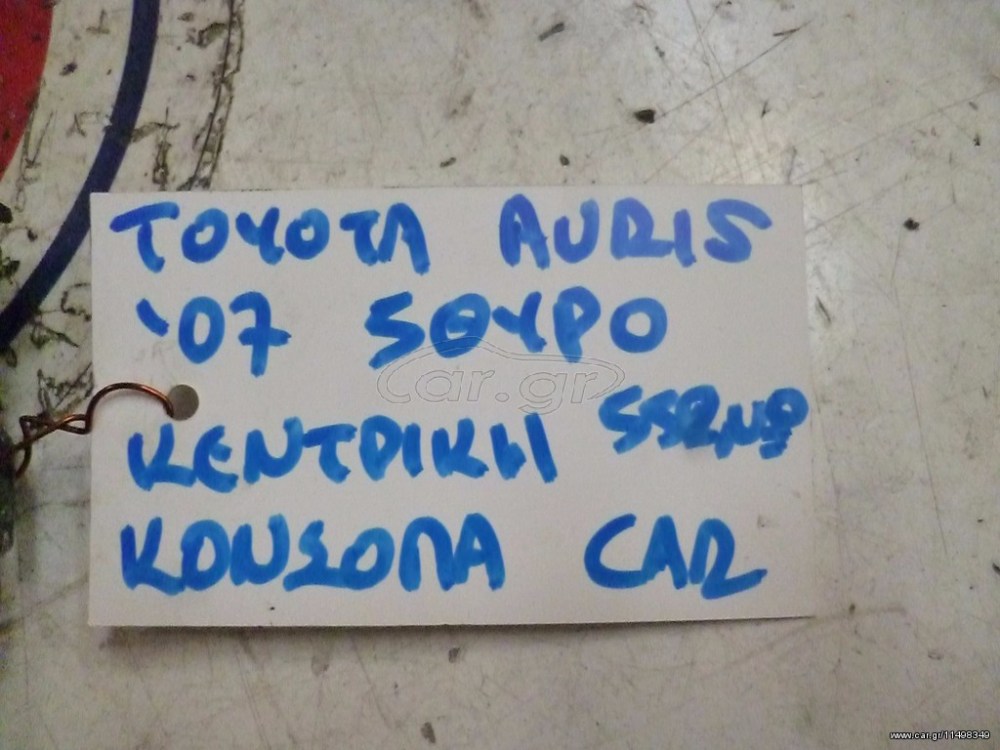 TOYOTA AURIS
'07 5ΘΥΡΟ
ΚΕΝΤΡΙΚΗ
ΚΟΝΣΟΛΑ CAR
car.gr
www.car.gr/11498349